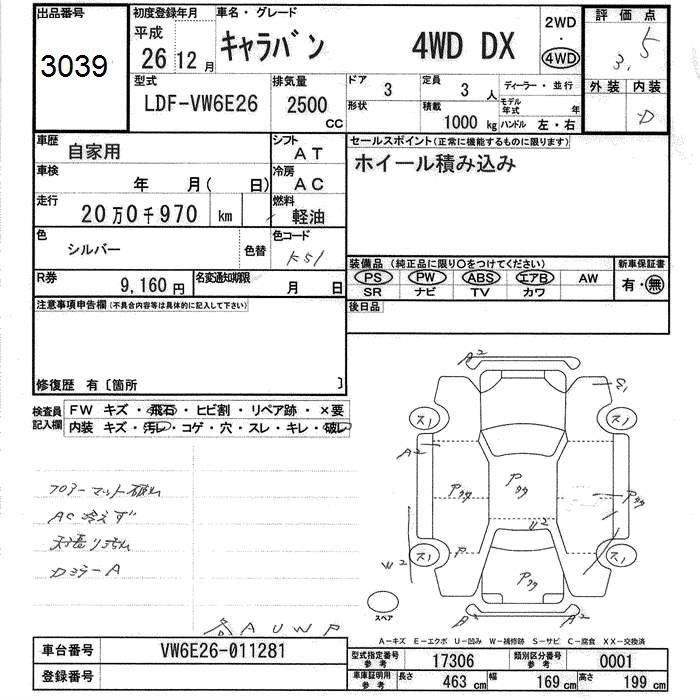 出品番号 初度登録年月 車名・グレード 2WD 評価点
3039 平成 26 12月 キャラバン 4WD DX ・ 4WD 3.5
型式 排気量 ドア 3 定員 3人 ディーラー・並行 外装 内装
LDF-VW6E26 2500 CC 形状 積載 1000 kg モデル年式 年 D
ハンドル 左・右
車歴 自家用 シフト AT セールスポイント(正常に機能するものに限ります)
車検 年 月( 日) 冷房 AC ホイール積み込み
走行 20万0千970 km 燃料 軽油
色 シルバー 色替 色コード K51
装備品 (純正品に限り○をつけてください) 新車保証書
R券 9,160円 名変通知期限 月 日 PS PW ABS エアB AW 有・無
SR ナビ TV カワ
注意事項申告欄(不具合内容等は具体的に記入して下さい) 後日品
修復歴 有〔箇所 〕
検査員記入欄 FW キズ・飛石・ヒビ割・リペア跡・×要
内装 キズ・汚レ・コゲ・穴・スレ・キレ・破レ
A2
S1
ス1 ス1
A2
Pクケ Pクケ Pクケ
フロアーマット破れ
AC冷えず
W2
W2 P
ス1 ス1
DラーA
Pクケ
スペア
A2 A2
AUWP
A-キズ E-エクボ U-凹み W-補修跡 S-サビ C-腐食 XX-交換済
車台番号 VW6E26-011281 型式指定番号参考 17306 類別区分番号参考 0001
登録番号 車庫証明用参考 長さ 463cm 幅 169cm 高さ 199cm